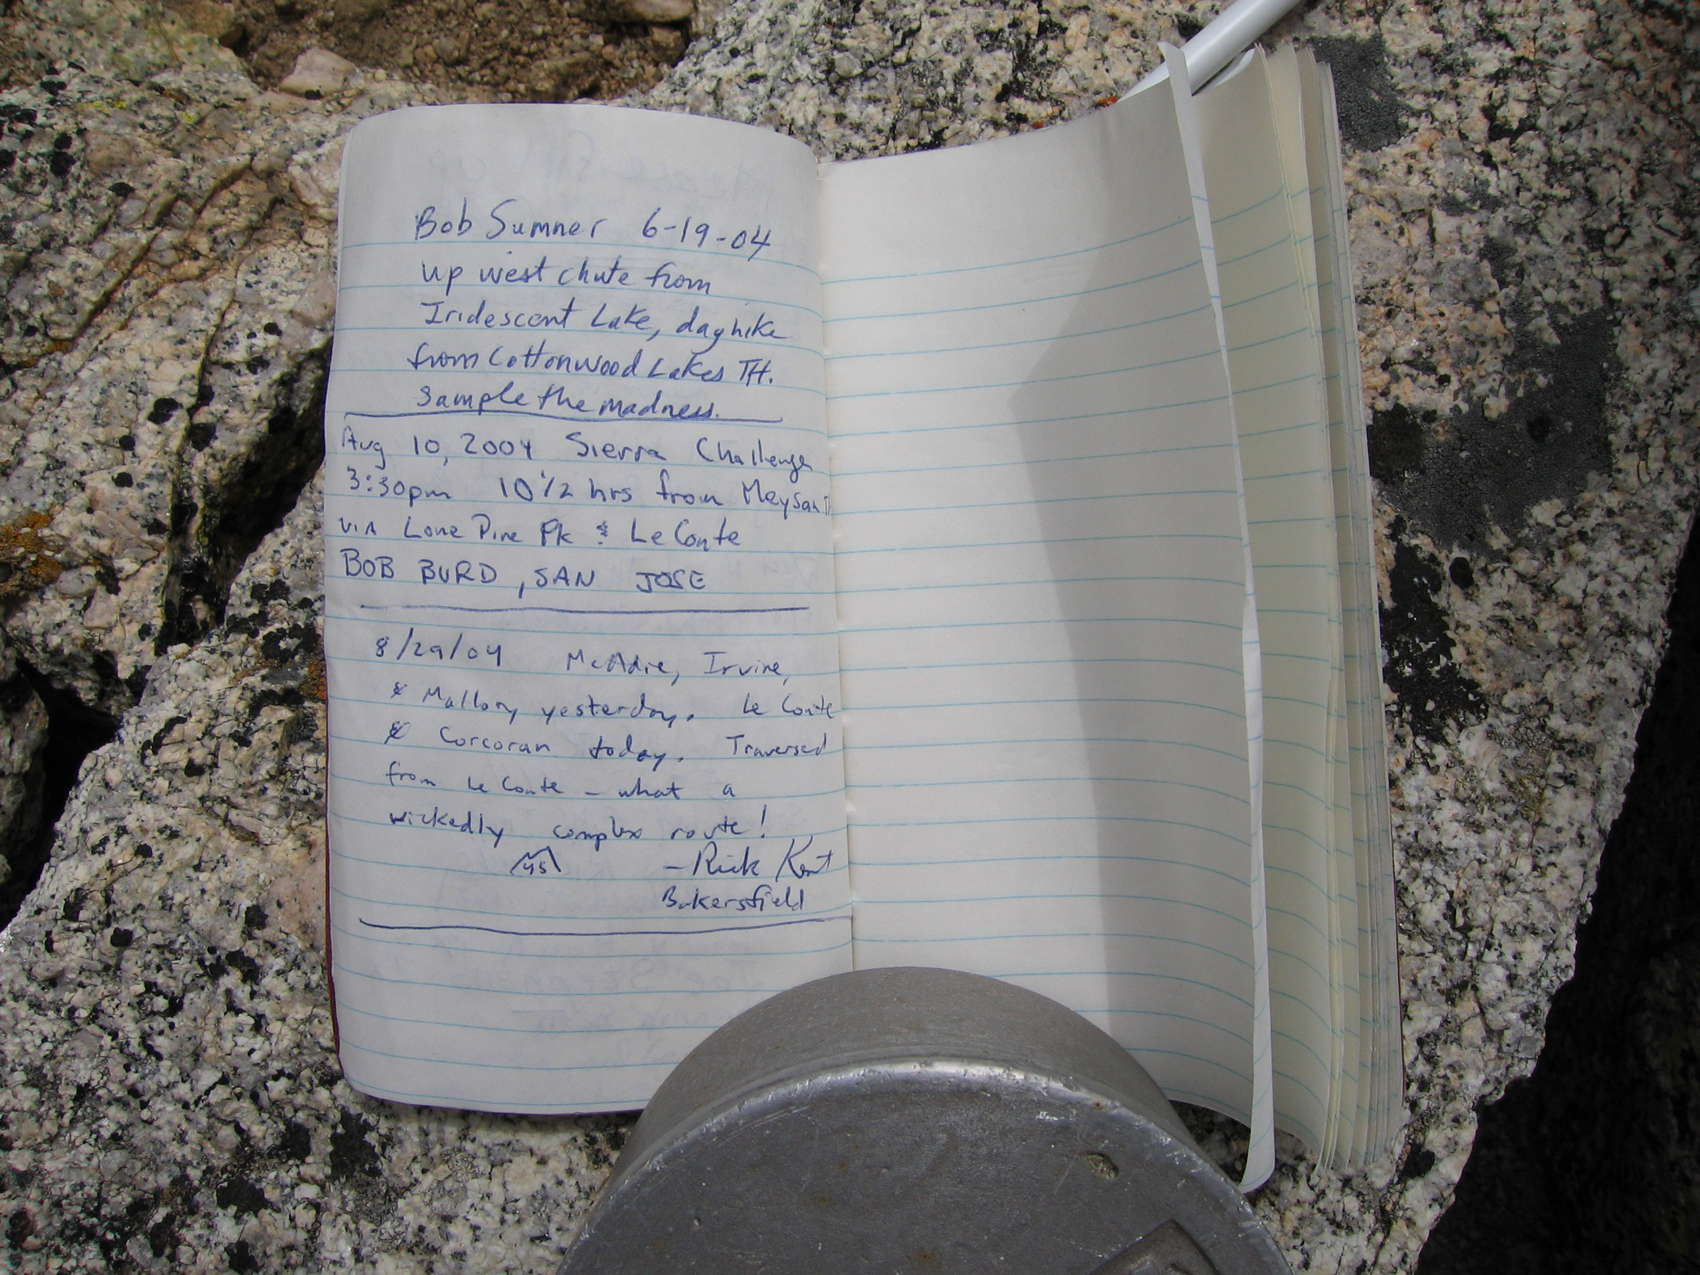 Bob Sumner 6-19-04
up west chute from
Iridescent Lake, dayhike
from Cottonwood Lakes TH.
Sample the madness.
Aug 10, 2004 Sierra Challenge
3:30pm 10 1/2 hrs from Meysan
via Lone Pine Pk & Le Conte
BOB BURD, SAN JOSE
8/29/04 McAdie, Irvine,
& Mallory yesterday. Le Conte
& Corcoran today. Traversed
from Le Conte - what a
wickedly complex route!
- Rick Kent
Bakersfield